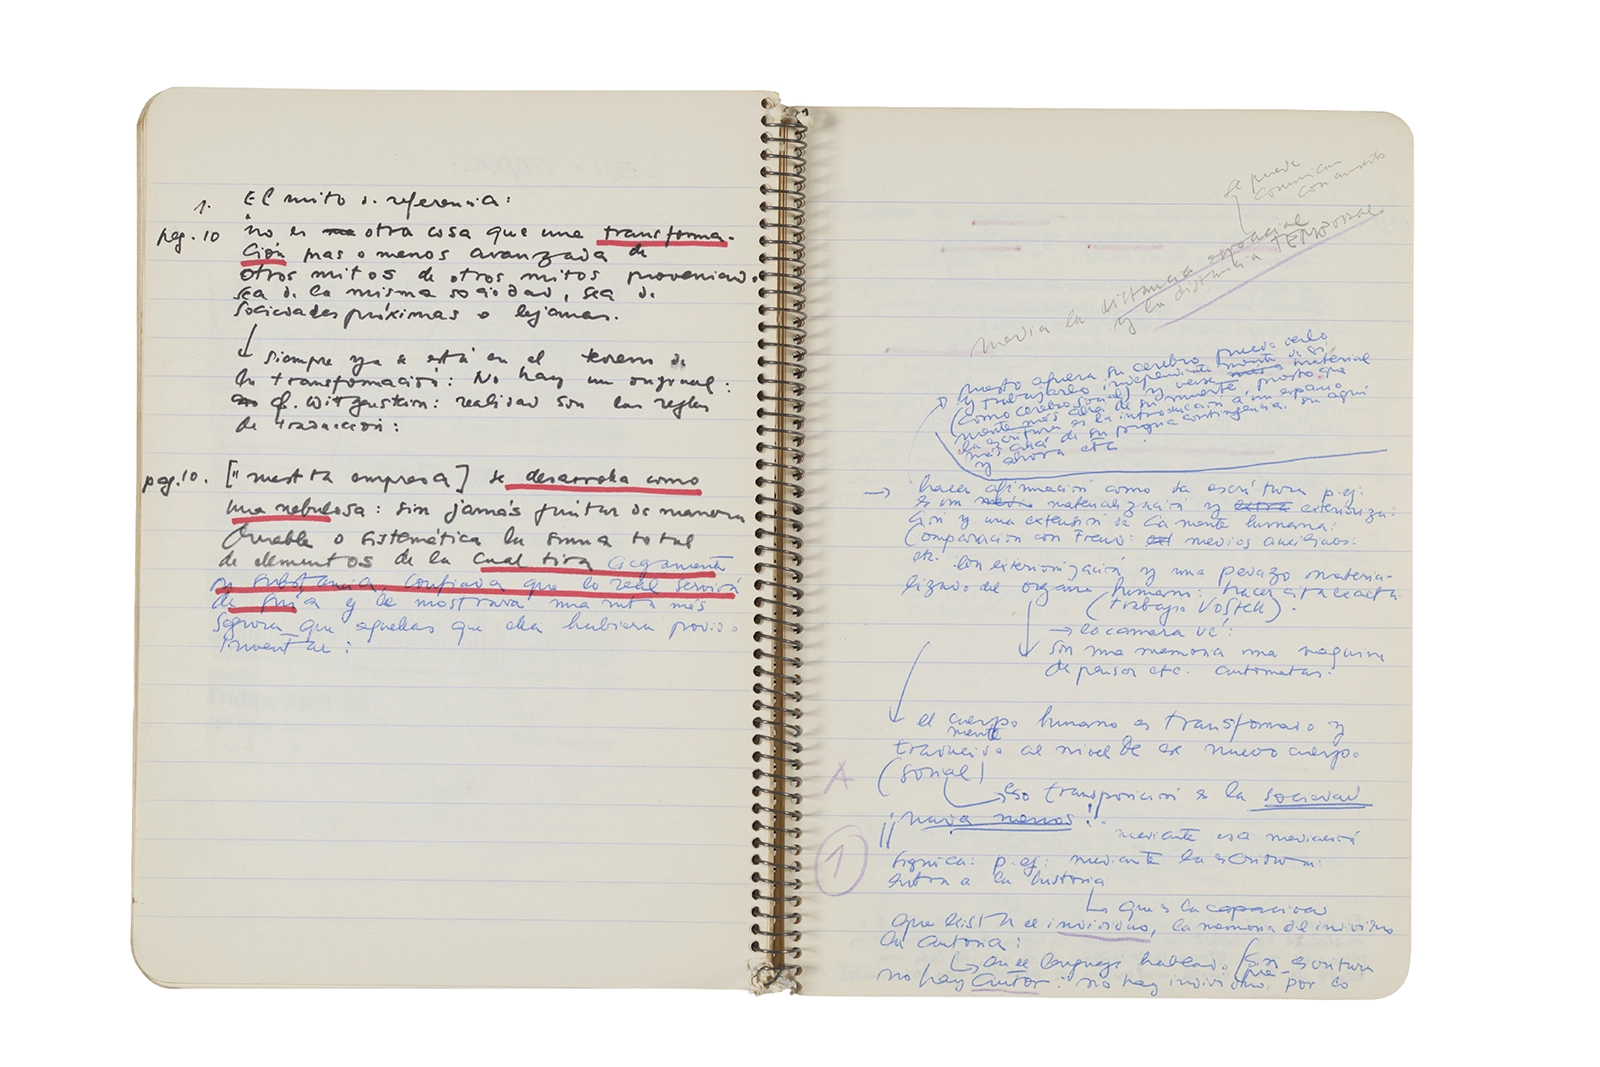 1. El mito d. referencia:
pag. 10 no es otra cosa que una transforma-
ción mas o menos avanzada de
otros mitos de otros mitos provenien
sea de la misma sociedad, sea de
sociedades próximas o lejanas.
siempre ya se está en el terreno de
la transformación: No hay un original:
cf. Wittgenstein: realidad son las reglas
de traducción:
pag. 10. ["nuestra empresa] se desarrolla como
una nebulosa: sin jamás juntar de manera
durable o sistemática la suma total
de elementos de la cual tira ciegamente
su substancia confiada que lo real servirá
de guía y le mostrará una ruta más
segura que aquellas que ella hubiera podido
inventar:
se puede
comunicar
con
media la distancia espacial
y la distancia TEMPORAL
puesto afuera su cerebro puede verlo
y trabajarlo independiente de si
(como cerebro social) y verse material
mente más allá de su muerte, puesto que
la escritura es la introducción a un espacio
más allá de su propia contingencia. su aquí
y ahora etc
→ hacer afirmación como la escritura p.ej.
es un materialización y exterioriza-
ción y una extensión de la mente humana:
Comparación con Freud: medios auxiliares.
etc. son exteriorización y una pedazo materia-
lizado del organo humano: hacer cita exacta.
(trabajo Vostell).
→ la camara ve:
son una memoria una maquina
de pensar etc. automatas.
el cuerpo humano es transformado y
mente
traducido al nivel de ese nuevo cuerpo
(social)
eso transposición es la sociedad
¡nada menos! mediante esa mediación
signica: p.ej: mediante la escritura:
entra a la historia
que es la capacidad
que el individuo, la memoria del individuo
la autoria:
en el lenguaje hablado. (sin escritura
no hay autor: no hay individuo. por lo
A
1